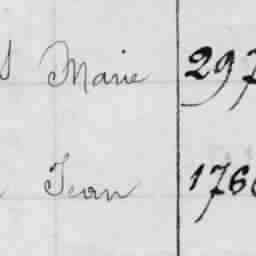 Marie 297
Jean 1766